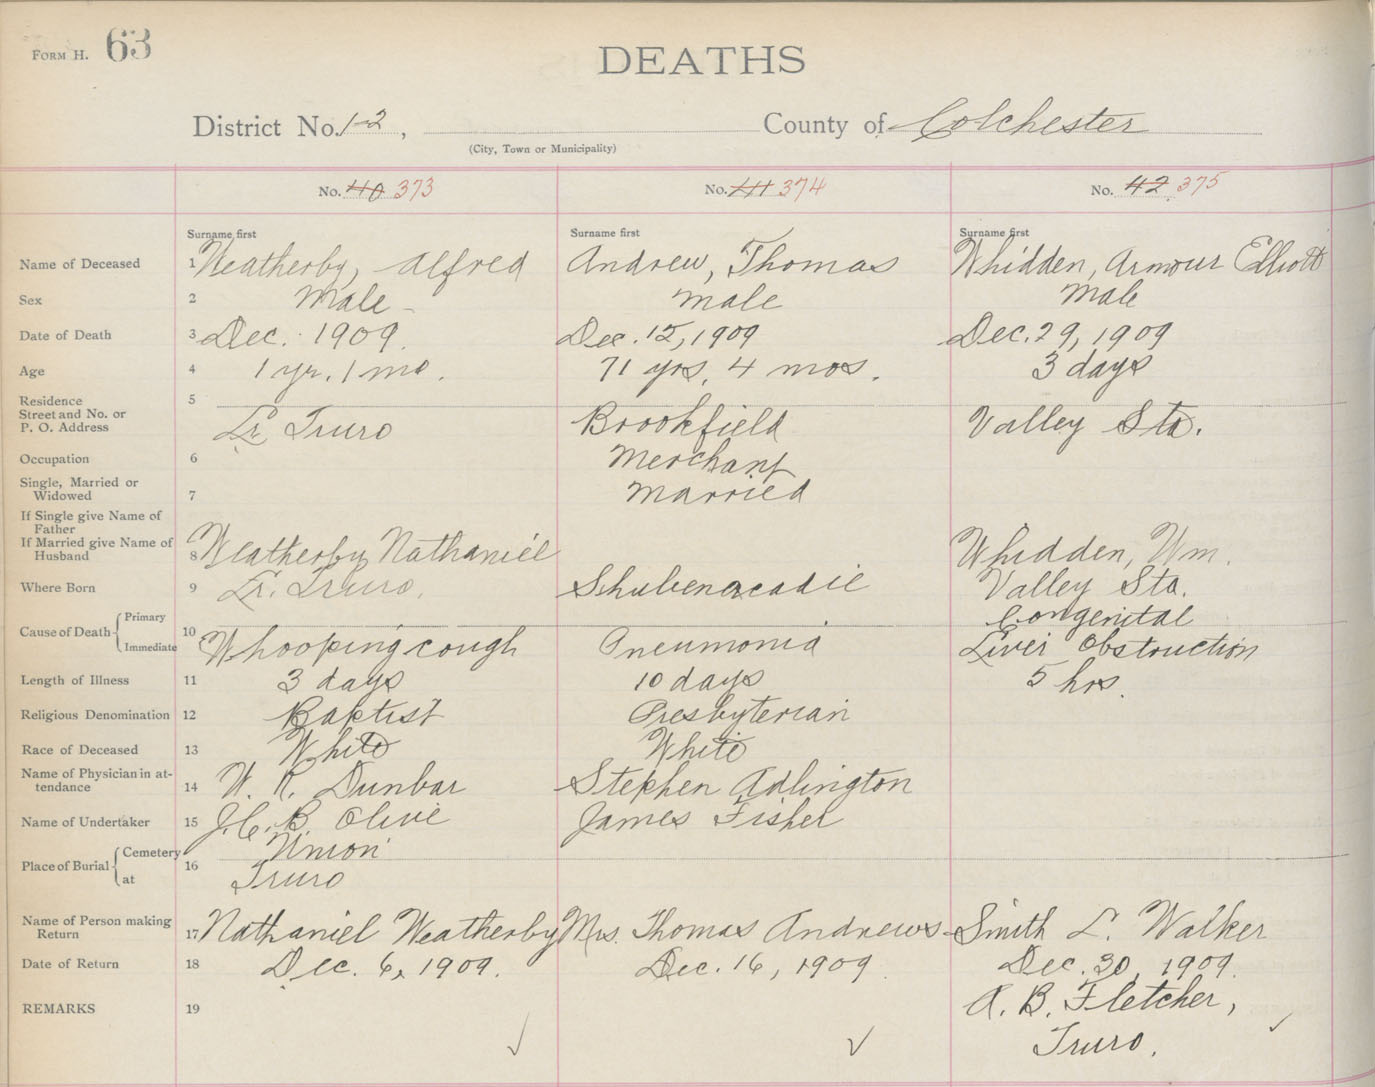 FORM H. 63
DEATHS
District No. 1-2, County of Colchester
(City, Town or Municipality)
No. 40 373 No. 41 374 No. 42 375
Surname first Surname first Surname first
Name of Deceased 1 Weatherby, Alfred Andrew, Thomas Whidden, Armour Elliott
Sex 2 Male Male Male
Date of Death 3 Dec. 1909. Dec. 12, 1909 Dec. 29, 1909
Age 4 1 yr. 1 mo. 71 yrs, 4 mos. 3 days
Residence 5
Street and No. or
P. O. Address Lr. Truro Brookfield Valley Sta.
Occupation 6 Merchant
Single, Married or
Widowed 7 Married
If Single give Name of
Father
If Married give Name of
Husband 8 Weatherby Nathaniel Whidden, Wm.
Where Born 9 Lr. Truro. Shubenacadie Valley Sta.
Cause of Death { Primary 10 Congenital
Immediate Whooping cough Pneumonia Liver Obstruction
Length of Illness 11 3 days 10 days 5 hrs.
Religious Denomination 12 Baptist Presbyterian
Race of Deceased 13 White White
Name of Physician in at-
tendance 14 W. R. Dunbar Stephen Adlington
Name of Undertaker 15 J. C. B. Olive James Fisher
Place of Burial { Cemetery 16 Union
at Truro
Name of Person making
Return 17 Nathaniel Weatherby Mrs. Thomas Andrews Smith L. Walker
Date of Return 18 Dec. 6, 1909. Dec. 16, 1909 Dec. 30, 1909.
REMARKS 19 A. B. Fletcher,
Truro.